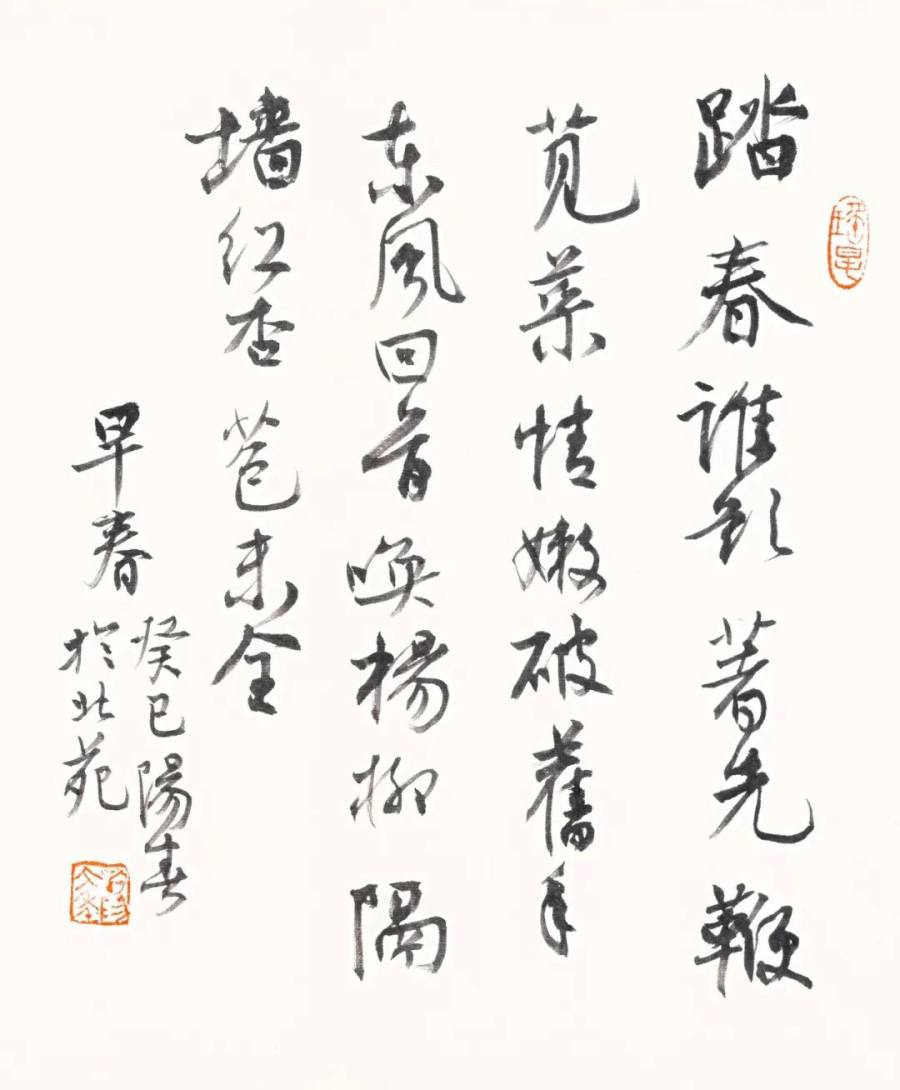 踏春谁欲著先鞭
苋菜情嫩破舊年
东风回首唤楊柳隔
墙红杏苞未全
早春
癸巳陽春
於北苑